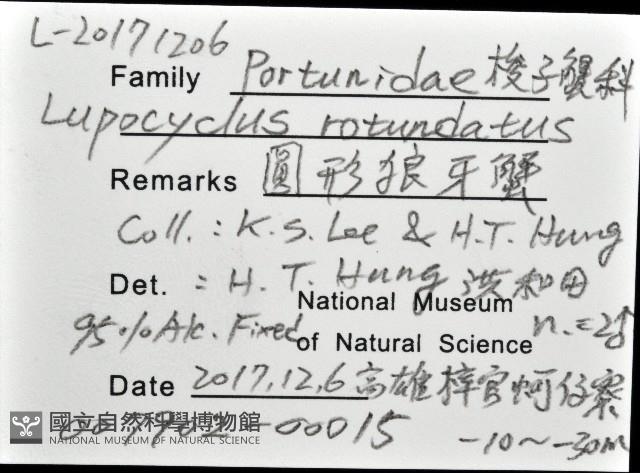 L-20171206
Family Portunidae 梭子蟹科
Lupocyclus rotundatus
Remarks 圓形狼牙蟹
Coll. : K.S. Lee & H.T. Hung
Det. : H.T. Hung 洪和田
National Museum
95% Alc. Fixed
of Natural Science n.=2♂
Date 2017.12.6 高雄梓官蚵仔寮
國立自然科學博物館
-00015
NATIONAL MUSEUM OF NATURAL SCIENCE
-10~-30m